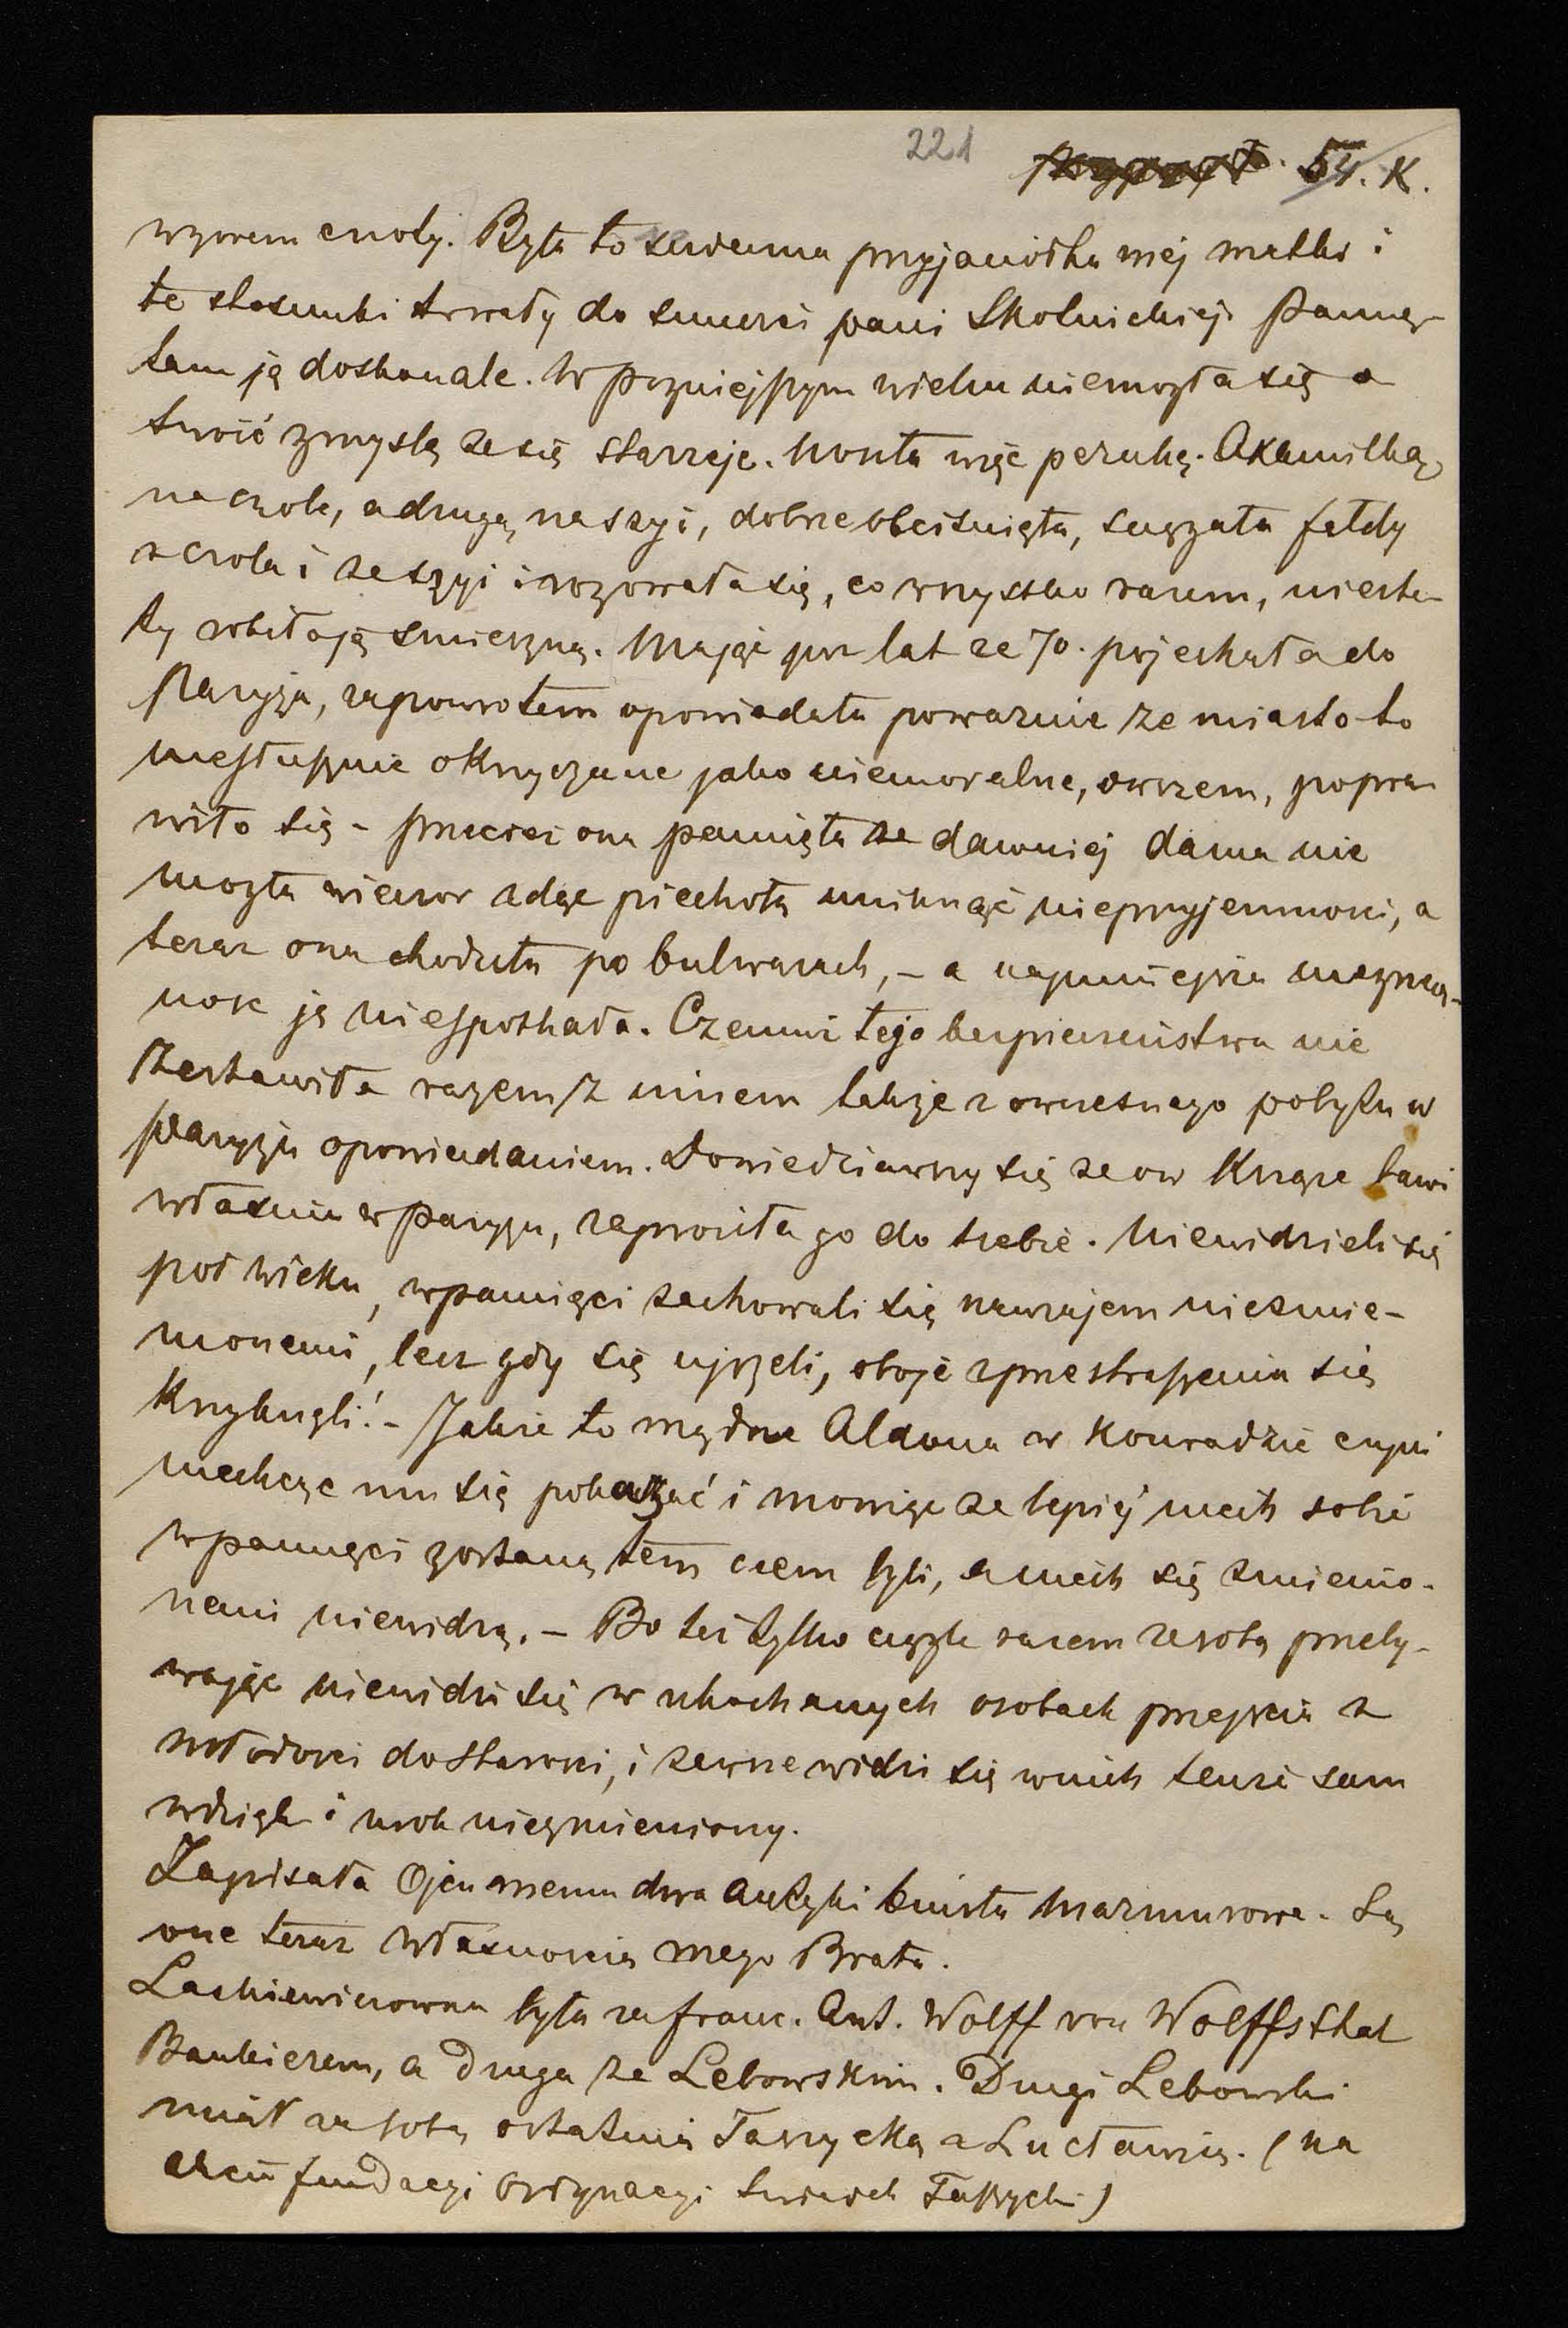 221
54. K.
wzorem cnoty. Była to serdeczna przyjaciółka mej matki i
te stosunki trwały do smierci pani Skolnickiej. Pamię-
tam ją doskonale. W pozniejszym wieku niemogła się o
swoić z myslą ze się starzeje. Nosiła więc perukę. Axamitką
na czole, a drugą na szyi, dobrze obcisniętą, sciągała fałdy
z czola i ze szyi i rozowała się, co wszystko razem, nieste-
ty robiło ją smieszną. Mając juz lat ze 70. pojechała do
Paryża, zapowrotem opowiadała powaznie ze miasto to
niesłusznie okrzyczane jako niemoralne, owszem, popra
wiło się - przeciez ona pamięta ze dawniej dama nie
mogła wieczor idąc piechotą uniknąć nieprzyjemnosci, a
teraz ona chodziła po bulwarach, - a najmniejsza niegrzecz-
nosc ją niespotkała. Czemuż tego bezpieczeństwa nie
zestawiła razem z innem także z owczesnego pobytu w
Paryżu opowiadaniem. Dowiedziawszy się ze ow Książe bawi
własnie w Paryżu, zaprosiła go do siebie. Niewidzieli się
poł wieku, w pamięci zachowali się nawzajem niezmie-
nionemi, lecz gdy się ujrzeli, oboje z przestraszenia się
Krzyknęli! - Jakze to mądrze Aldona w Konradzie czyni
niechcąc mu się pokazać i mowiąc ze lepiej niech sobie
w pamięci zostaną tem czem byli, a niech się zmienio-
nemi niewidzą. - Bo też tylko ciągle razem ze sobą przeby-
wając niewidzi się w ukochanych osobach przejscia z
młodosci do starosci, i zawsze widzi się w nich tenze sam
wdzięk i urok niezmieniony.
Zapisała Ojcu memu dwa antyki biusta marmurowe. Są
one teraz własnoscią mego Brata.
Laskiewiczowna była za franc. Ant. Wolff von Wolffsthal
Bankierem, a druga za Lebowskim. Drugi Lebowski
miał za sobą ostatnią Taszycką z Lucławic. (na
chcii fundacyi Ordynacyi Taszycki)